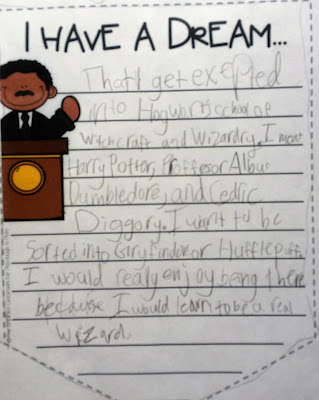 I HAVE A DREAM...
That I get exepted
into Hogwarts school of
Witchcraft and Wizardry. I meat
Harry Potter, Proffesor Albus
Dumbledore, and Cedric
Diggory. I want to be
Sorted into Gryfindor or Hufflepuff.
I would really enjoy being there
because I would learn to be a real
Wizard.